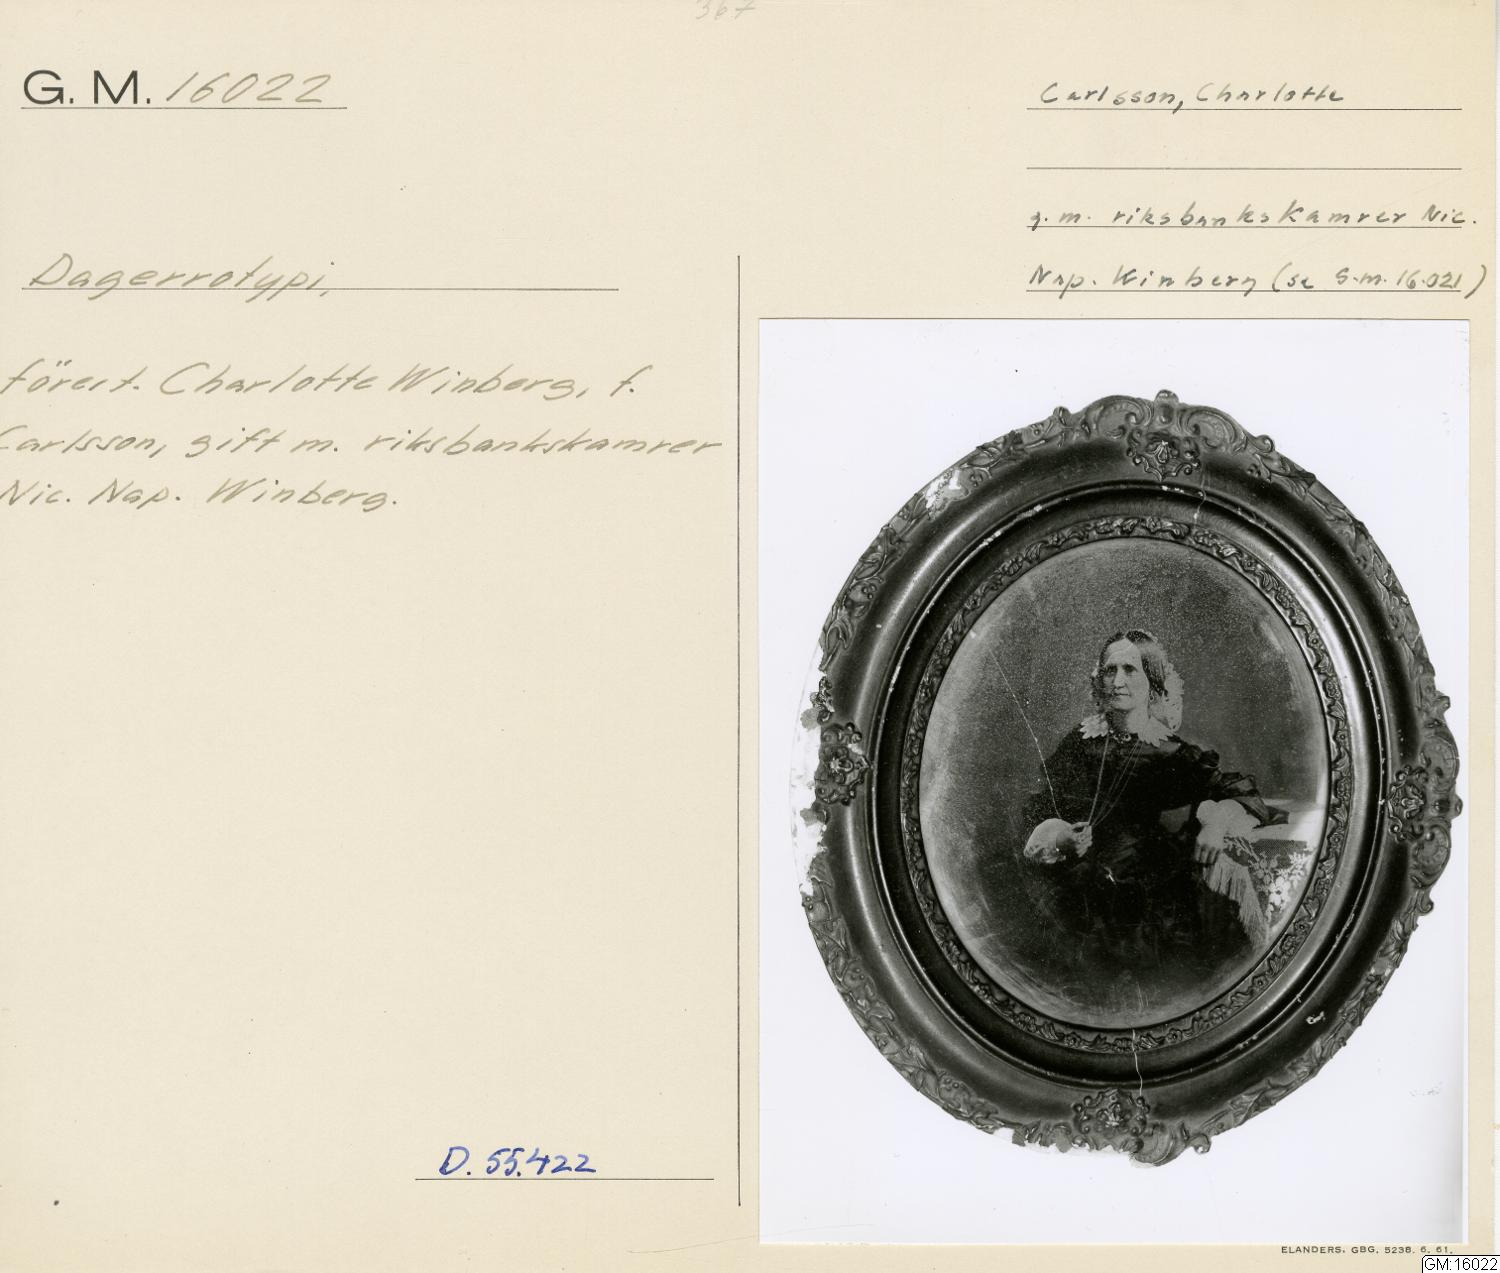 367
G. M. 16022
Carlsson, Charlotte
g. m. riksbankskamrer Nic.
Nap. Winberg (se G.m. 16.021)
Dagerrotypi,
förest. Charlotte Winberg, f.
Carlsson, gift m. riksbankskamrer
Nic. Nap. Winberg.
D. 55.422
ELANDERS, GBG, 5238. 6. 61.
GM:16022